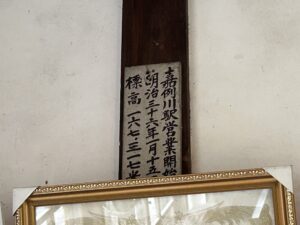 嘉例川駅営業開始
明治三十六年一月十五
標高一六七・三一七米